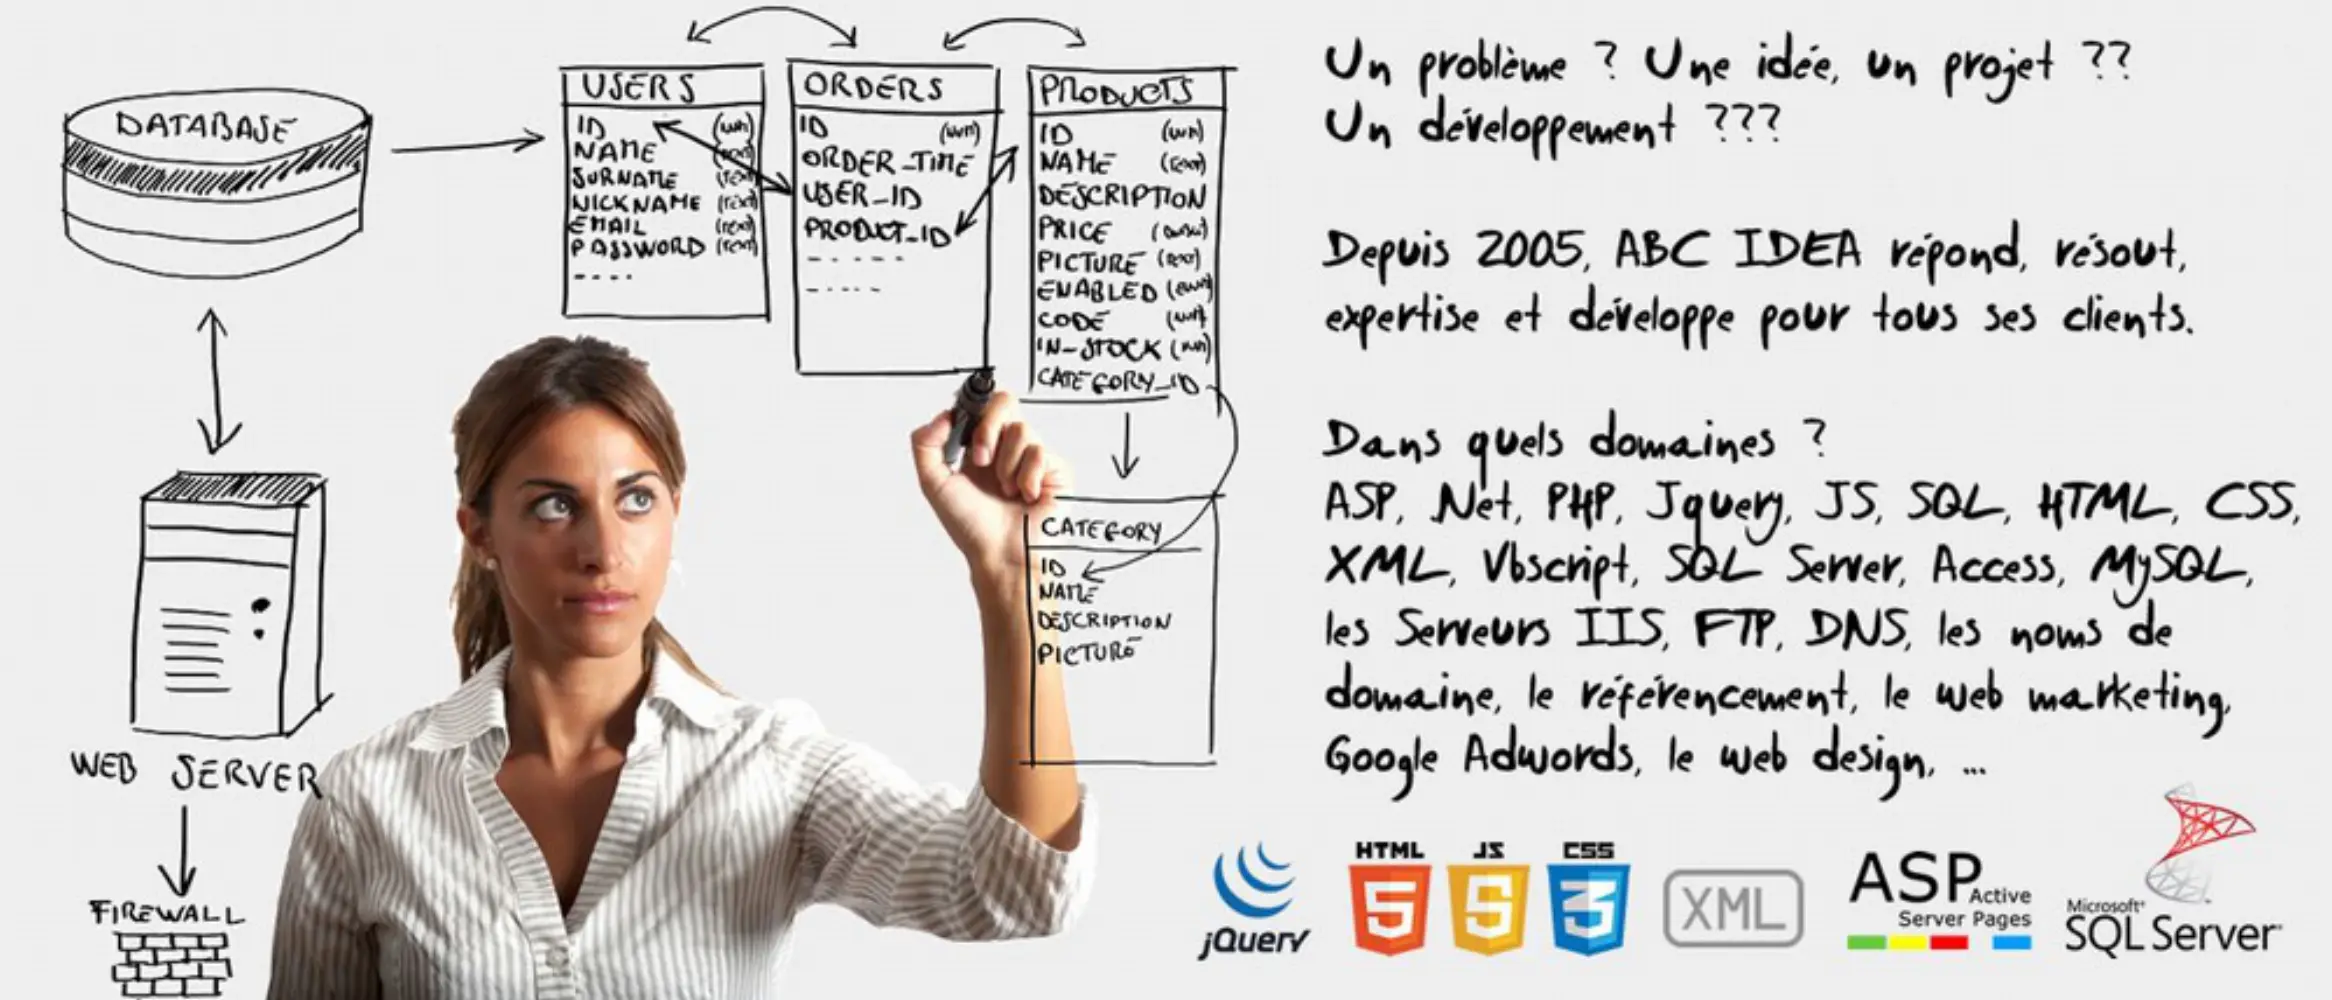 DATABASE
WEB SERVER
FIREWALL
USERS
ID
NAME
SURNAME
NICKNAME (TEXT)
EMAIL (TEXT)
PASSWORD (TEXT)
ORDERS
ID
ORDER_TIME
USER_ID
PRODUCT_ID
PRODUCTS
ID
NAME (TEXT)
DESCRIPTION
PRICE
PICTURE (TEXT)
ENABLED
CODE
IN-STOCK
CATEGORY_ID
CATEGORY
ID
NAME
DESCRIPTION
PICTURE
Un problème ? Une idée, un projet ??
Un développement ???
Depuis 2005, ABC IDEA répond, résout,
expertise et développe pour tous ses clients.
Dans quels domaines ?
ASP, .Net, PHP, Jquery, JS, SQL, HTML, CSS,
XML, Vbscript, SQL Server, Access, MySQL,
les Serveurs IIS, FTP, DNS, les noms de
domaine, le référencement, le web marketing,
Google Adwords, le web design, ...
jQuery
HTML
5
JS
S
CSS
3
XML
ASP Active
Server Pages
Microsoft
SQL Server